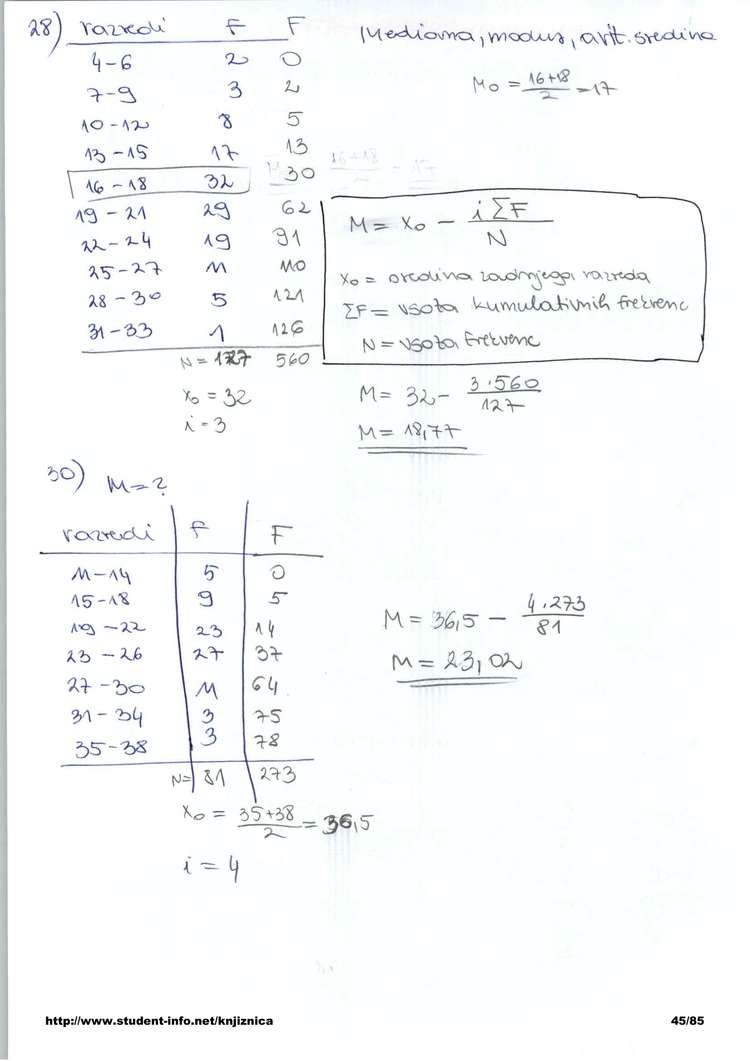 28) razredi f F Mediana, modus, arit. sredina
4-6 2 0
7-9 3 2 Mo = 16+18/2 = 17
10-12 8 5
13-15 17 13
16-18 32 30
19-21 29 62
22-24 19 91
25-27 11 110
28-30 5 121
31-33 1 126
N = 127 560
M = x₀ - i ΣF/N
x₀ = sredina zadnjega razreda
ΣF = vsota kumulativnih frekvenc
N = vsota frekvenc
x₀ = 32
i = 3
M = 32 - 3·560/127
M = 18,77
30) M = ?
razredi f F
11-14 5 0
15-18 9 5
19-22 23 14
23-26 27 37
27-30 11 64
31-34 3 75
35-38 3 78
N = 81 273
x₀ = 35+38/2 = 36,5
i = 4
M = 36,5 - 4·273/81
M = 23,02
http://www.student-info.net/knjiznica 45/85